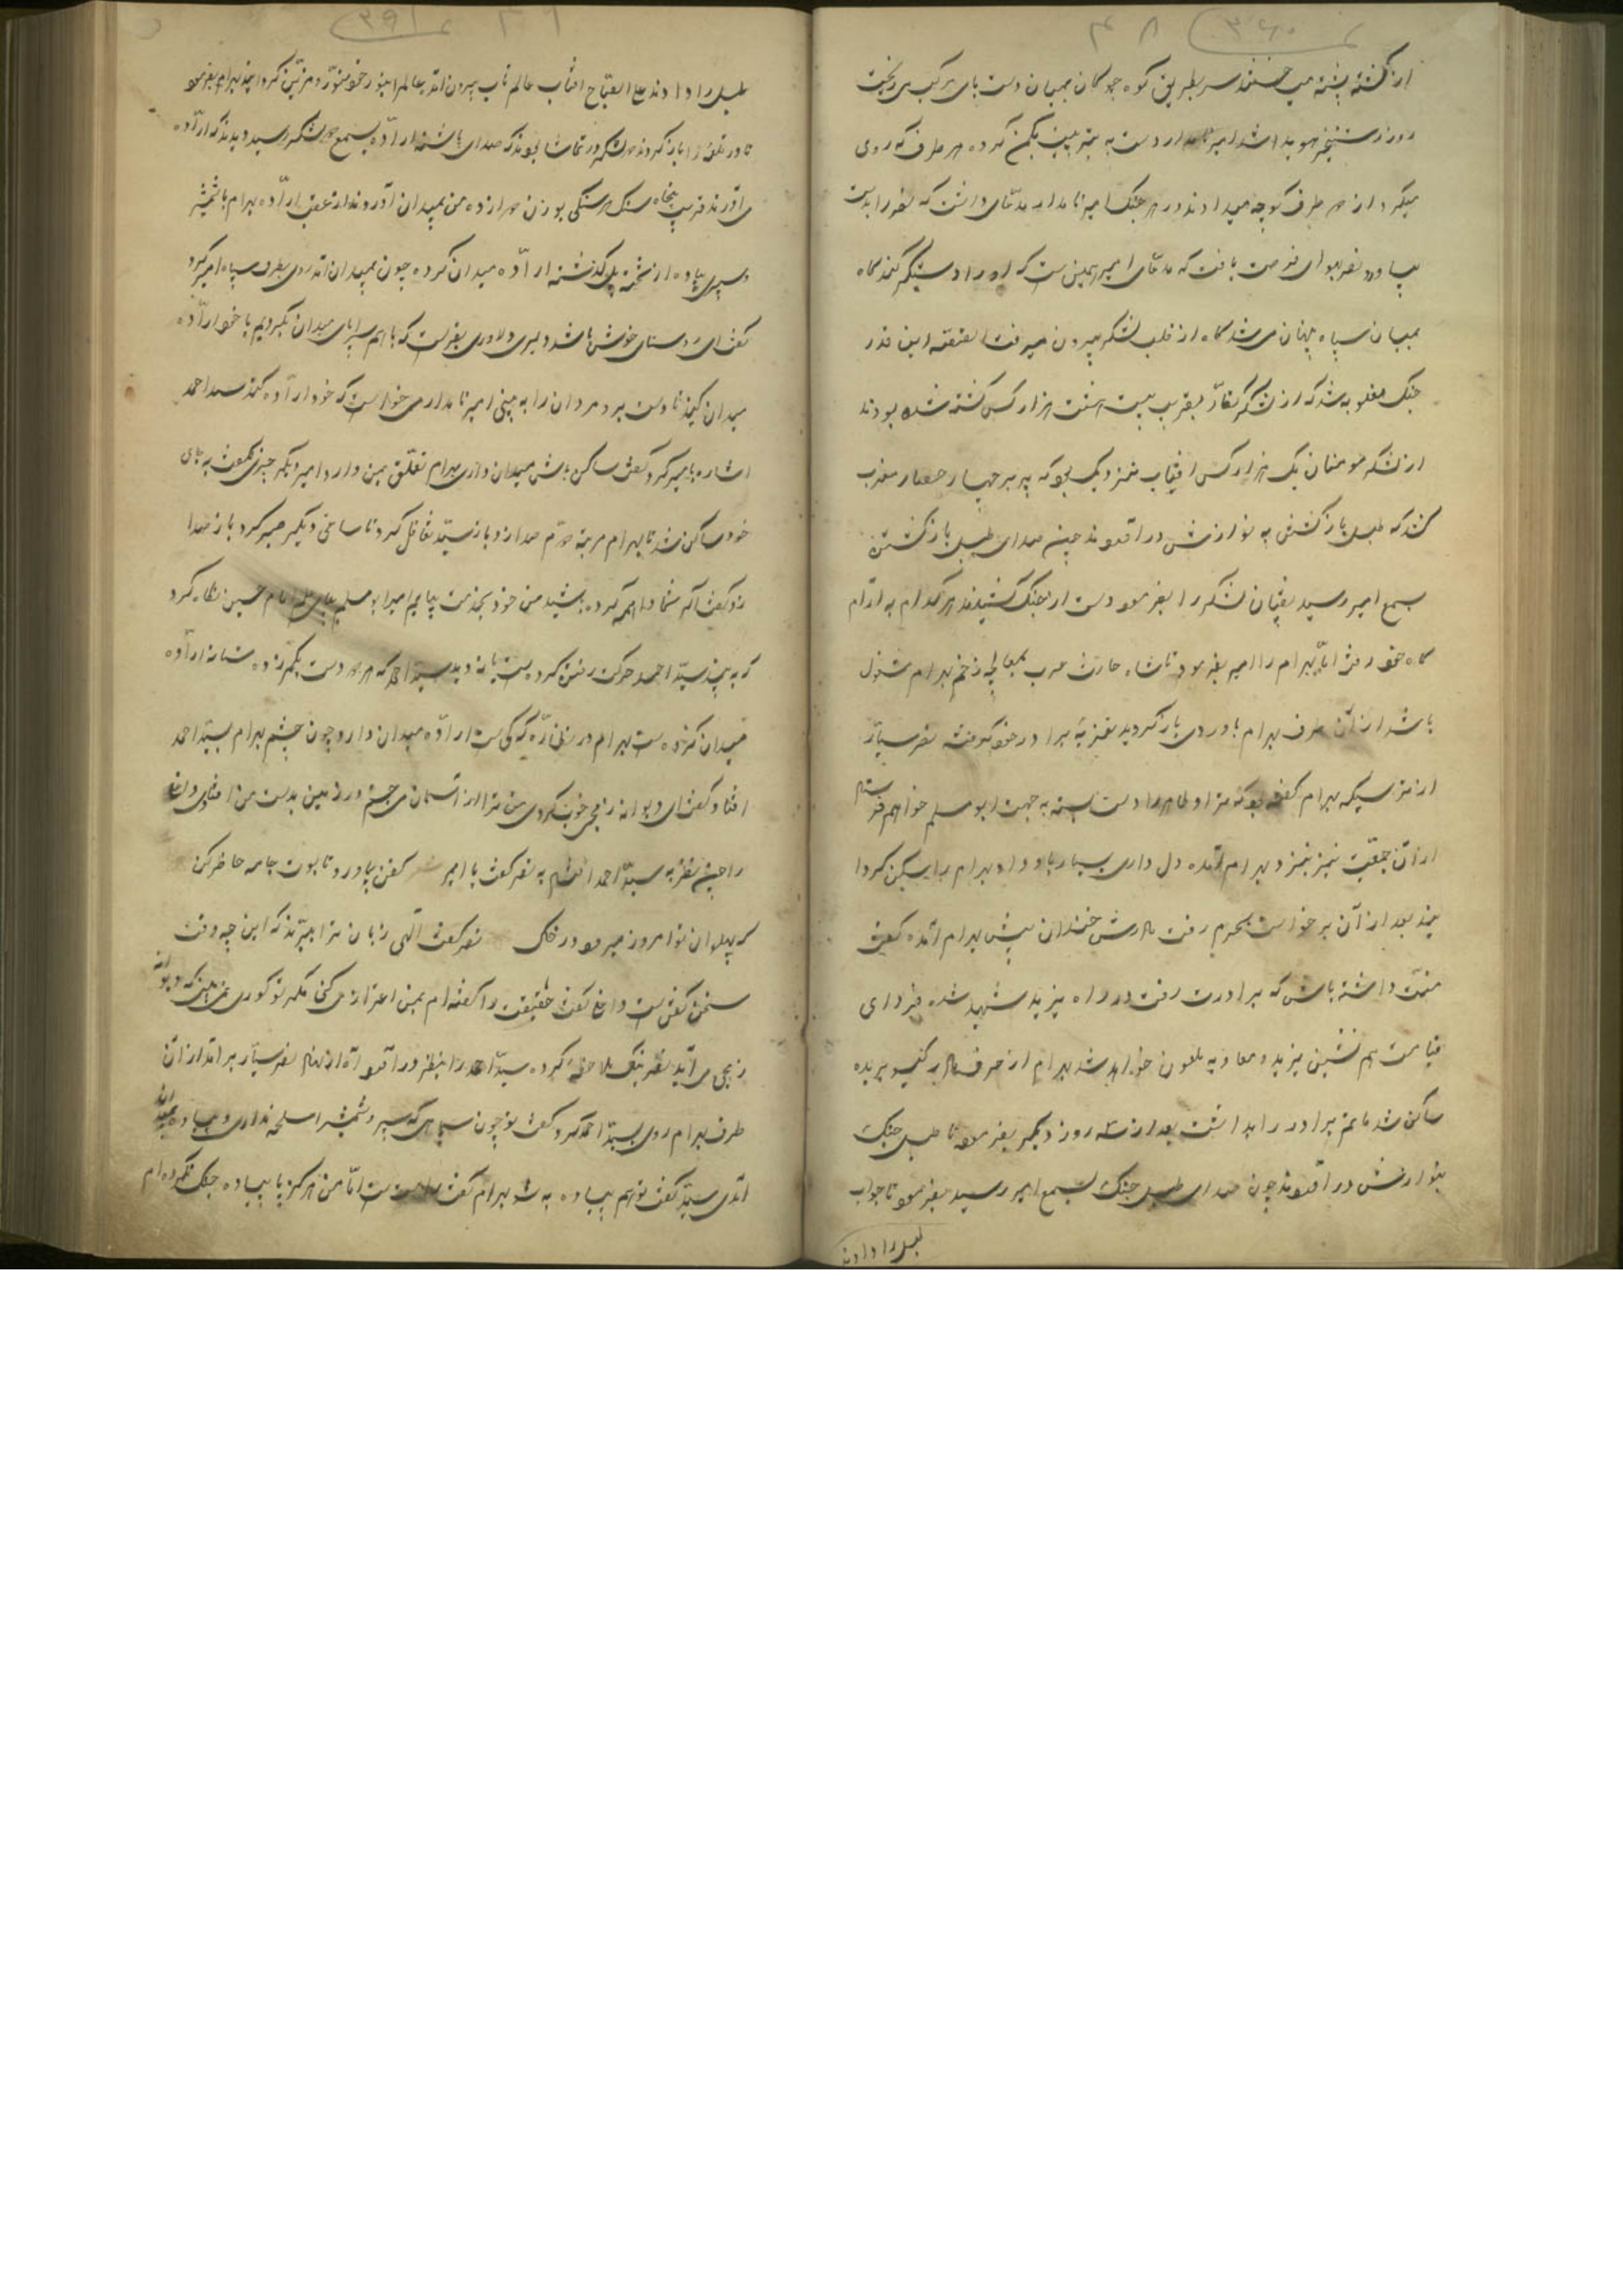 از کشته پشته می سر بطریق کوه چوکان بمیان دست پای مرکب می ریخت
روز رستخیز هویدا شد امیر نامدار دست به تیر کرده هر طرف که روی
میکرد از هر طرف کوچه میدادند در هر جنک امیر نامدار مدعای داشت که نصر را بدست
بیاورد نصر فرصت یافت که مدعای امیر همین ست که او را دستیکر کند کاه
بمیان سپاه پنهان می شد کاه از قلب لشکر بیرون میرفت القصه این قدر
جنک مغلوبه شد که از لشکر کفار بقریب بیست هشت هزار کس کشته شده بودند
از لشکر مومنان یک هزار کس افتاب نزدیک بود که بر حصار مغرب
کند که طبل بازکشتن به نوازش در اوردند چون صدای طبل بازکشتن
بسمع امیر رسید لشکر را بفرمود دست از جنک کشیدند هر کدام به ارام
کاه خود رفت اما بهرام را امیر بفرمود تا شاه حارث عرب بمعالجه زخم بهرام مشغول
باشد از آن طرف بهرام باوردی باز کردید تعزیه برادر خود کرفت نصر سیار
از ترسیکه بهرام کفته بود که ترا و طاهر را دست بسته به جهت ابو مسلم خواهم فرستاد
از آن جمعیت نیز نزد بهرام آمده دل داری بسیار باو داد بهرام را تسکین کرد
بعد از آن برخواست بحرم رفت مادرش خندان پیش بهرام آمده کفت
منت داشته باش که برادرت رفت در راه یزید شهید شده فردای
قیامت هم نشین یزید و معاویه ملعون خواهد شد بهرام از حرف مادر کیسو بریده
ساکن شد ماتم برادر را برداشت بعد از سه روز دیکر بفرمود تا طبل جنک
بنوازش در آوردند چون صدای طبل جنک بسمع امیر رسید بفرمود تا جواب
طبل را دادند
طبل را دادند علی الصباح افتاب عالم تاب بیرون آمد عالم را بنور خود منور و مزین کردانید بهرام بفرمود
تا در قلعه را باز کردند هر دو لشکر در تماشا بودند که صدای اراده بسمع هر دو لشکر رسید دیدند که اراده
می آورند قریب پنجاه سنک هر سنکی بوزن هزار ده من بمیدان آوردند از عقب اراده بهرام با شمشیر
و سپری پیاده از تخته پل کذشته اراده میدان کرده چون بمیدان آمد روی بطرف سپاه امیر کرد
کفت ای دوستان خوش باشد دلیری و دلاوری که باهم سراپای میدان بکردیم یا خود اراده
میدان کنید تا دست برد مردان را به بینی امیر نامدار می خواست که خود اراده کند سید احمد
اشاره بامیر کرد کفت ساکن باش میدان داری بهرام تعلق بمن دارد امیر دیکر چیزی نکفت به جای
خود ساکن شد تا بهرام مرتبه دوم صدا زد باز سید تغافل کرد تا ساعتی دیکر صبر کرد باز صدا
زد کفت اکر شما واهمه کرده باشید من خود بخدمت بیایم امیر ابو مسلم بجانب امام حسین نکاه کرد
که به بیند سید احمد حرکت رفتن کرده ست یا نه دید سید احمد که هر دو دست بکمر زده ستانه اراده
میدان کرده ست بهرام در نظاره که کی ست اراده میدان دارد چون چشم بهرام بسید احمد
افتاد کفت ای دیوانه زنجی خوب کردی من ترا از آسمان می جستم در زمین بدست من افتادی و نصر
را چون نظر به سید احمد افتاد به نصر کفت یا امیر کفن بیاور و تابوت جامه حاضر کن
که پهلوان تو امروز میرود در خاک نصر کفت الهی زبان ترا ببرند که این چه وقت
سخن کفتن ست داغ کفت حقیقت را کفته ام بمن اعتراض می کنی مکر تو کوری نمی بینی که دیوانه
زنجی می آید نصر نیک ملاحظه کرده سید احمد را بنظر در آورد آه از نهاد نصر سیار بر آمد از آن
طرف بهرام روی بسید احمد کرد و کفت تو چون سپاهی که سپر و شمشیر اسلحه نداری و پیاده بمیدان
آمدی سید کفت تو هم پیاده به شو بهرام کفت راست ست اما من هرکز با پیاده جنک نکرده ام